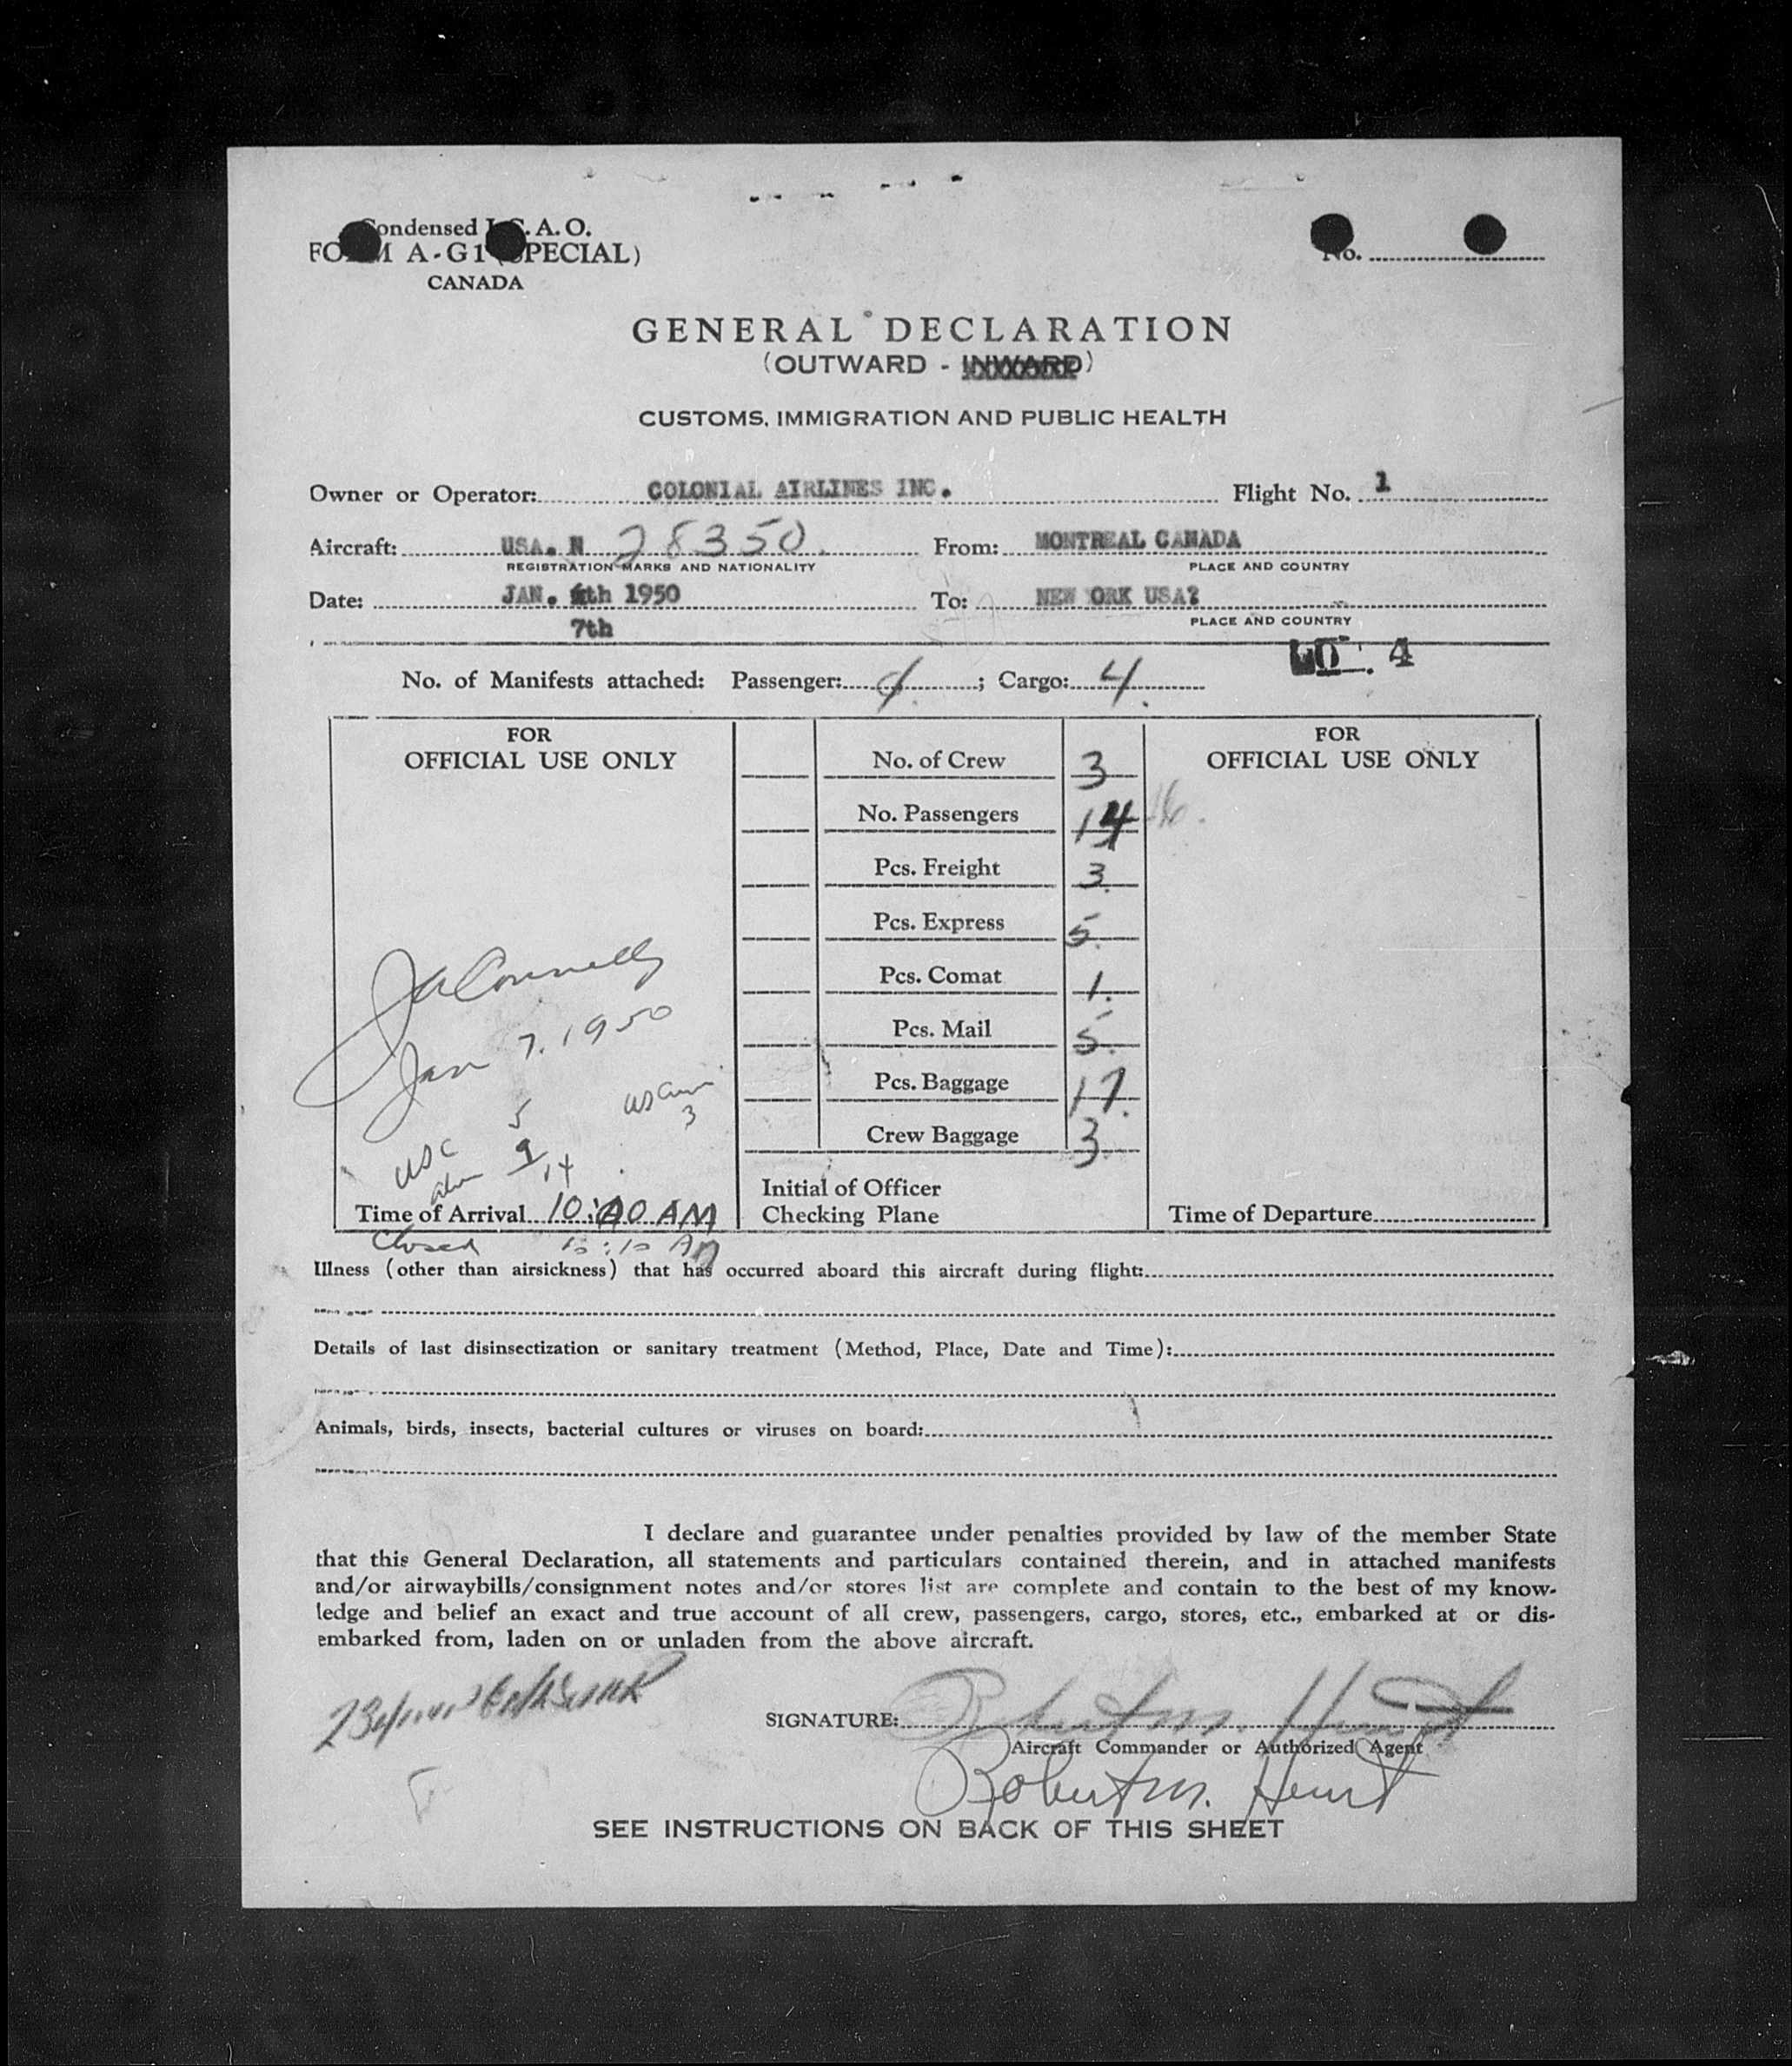 Condensed I.C.A.O.
FORM A-G1 (SPECIAL)
CANADA
No.
GENERAL DECLARATION
(OUTWARD - INWARD)
CUSTOMS, IMMIGRATION AND PUBLIC HEALTH
Owner or Operator: COLONIAL AIRLINES INC. Flight No. 1
Aircraft: USA. N 28350. From: MONTREAL CANADA
REGISTRATION MARKS AND NATIONALITY PLACE AND COUNTRY
Date: JAN. 6th 1950 To: NEW ORK USA?
7th PLACE AND COUNTRY
4
No. of Manifests attached: Passenger: ; Cargo: 4.
FOR
OFFICIAL USE ONLY
No. of Crew 3
No. Passengers 14 16.
Pcs. Freight 3.
Pcs. Express 5.
Pcs. Comat 1.
Pcs. Mail 5.
Pcs. Baggage 17.
Crew Baggage 3.
Initial of Officer
Checking Plane
FOR
OFFICIAL USE ONLY
J A Connelly
Jan 7. 1950
USC 5
alien 9
14
3
Time of Arrival 10:00 AM
Closed 10:10 AM
Time of Departure
Illness (other than airsickness) that has occurred aboard this aircraft during flight:
Details of last disinsectization or sanitary treatment (Method, Place, Date and Time):
Animals, birds, insects, bacterial cultures or viruses on board:
I declare and guarantee under penalties provided by law of the member State
that this General Declaration, all statements and particulars contained therein, and in attached manifests
and/or airwaybills/consignment notes and/or stores list are complete and contain to the best of my know-
ledge and belief an exact and true account of all crew, passengers, cargo, stores, etc., embarked at or dis-
embarked from, laden on or unladen from the above aircraft.
SIGNATURE: Robert M. Hewitt
Aircraft Commander or Authorized Agent
Robert M. Hewitt
SEE INSTRUCTIONS ON BACK OF THIS SHEET